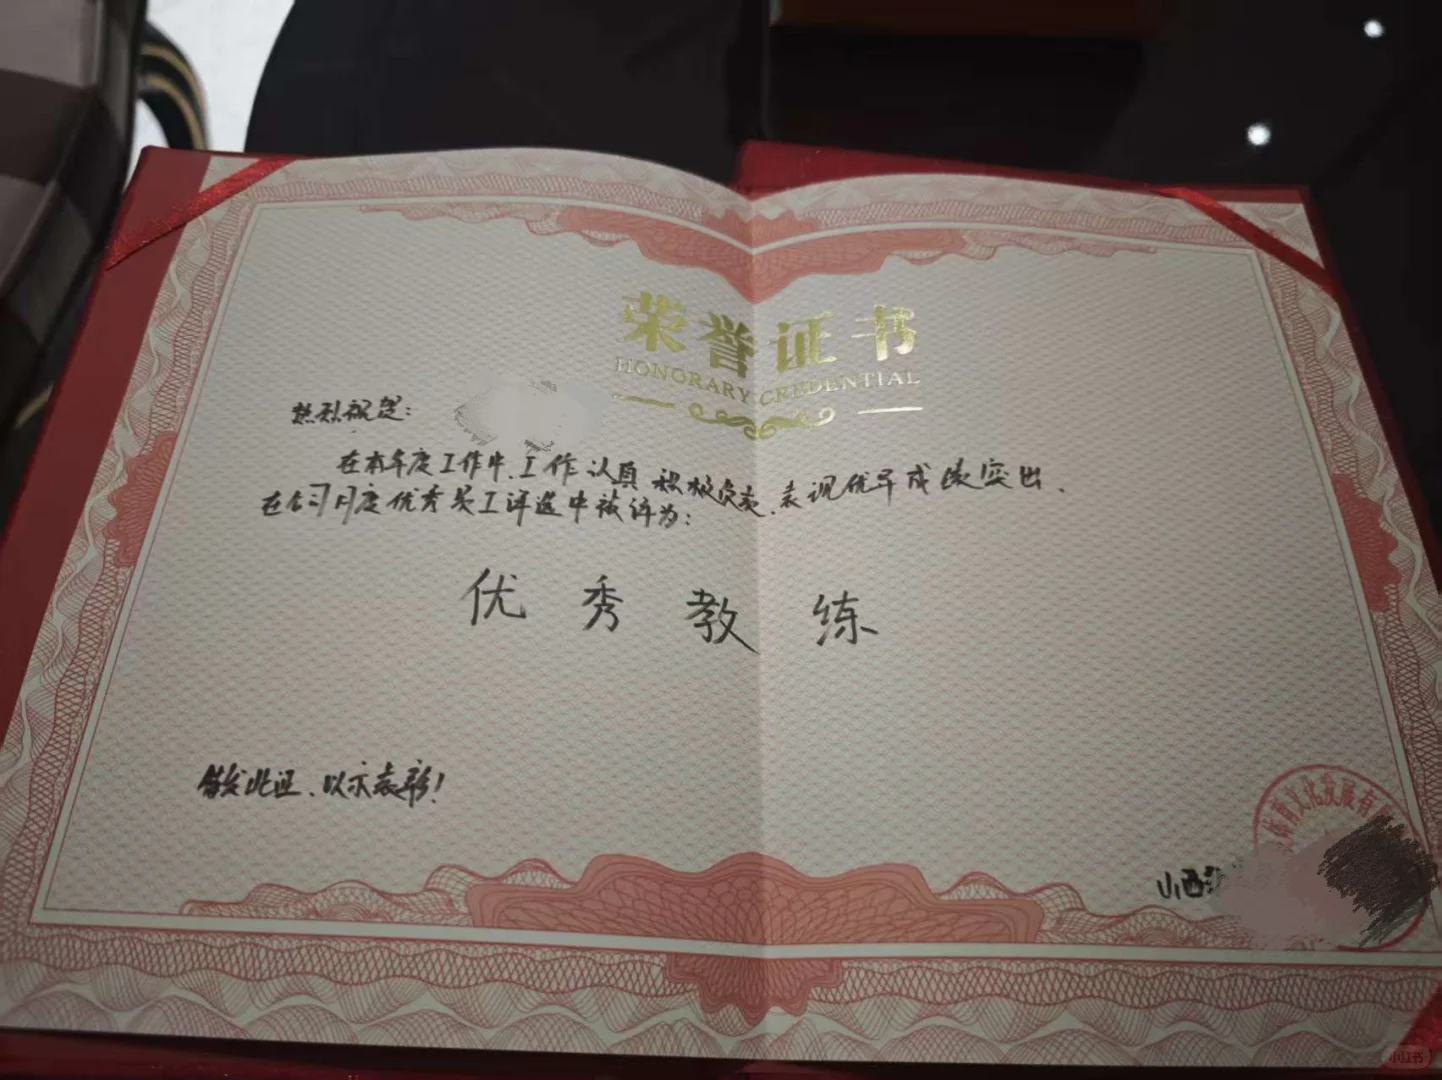 荣誉证书
HONORARY CREDENTIAL
热烈祝贺：
在本年度工作中、工作认真 积极负责、表现优异成绩突出、
在公司月度优秀员工评选中被评为：
优秀教练
特发此证、以示表彰！
体育文化发展有
山西
小红书